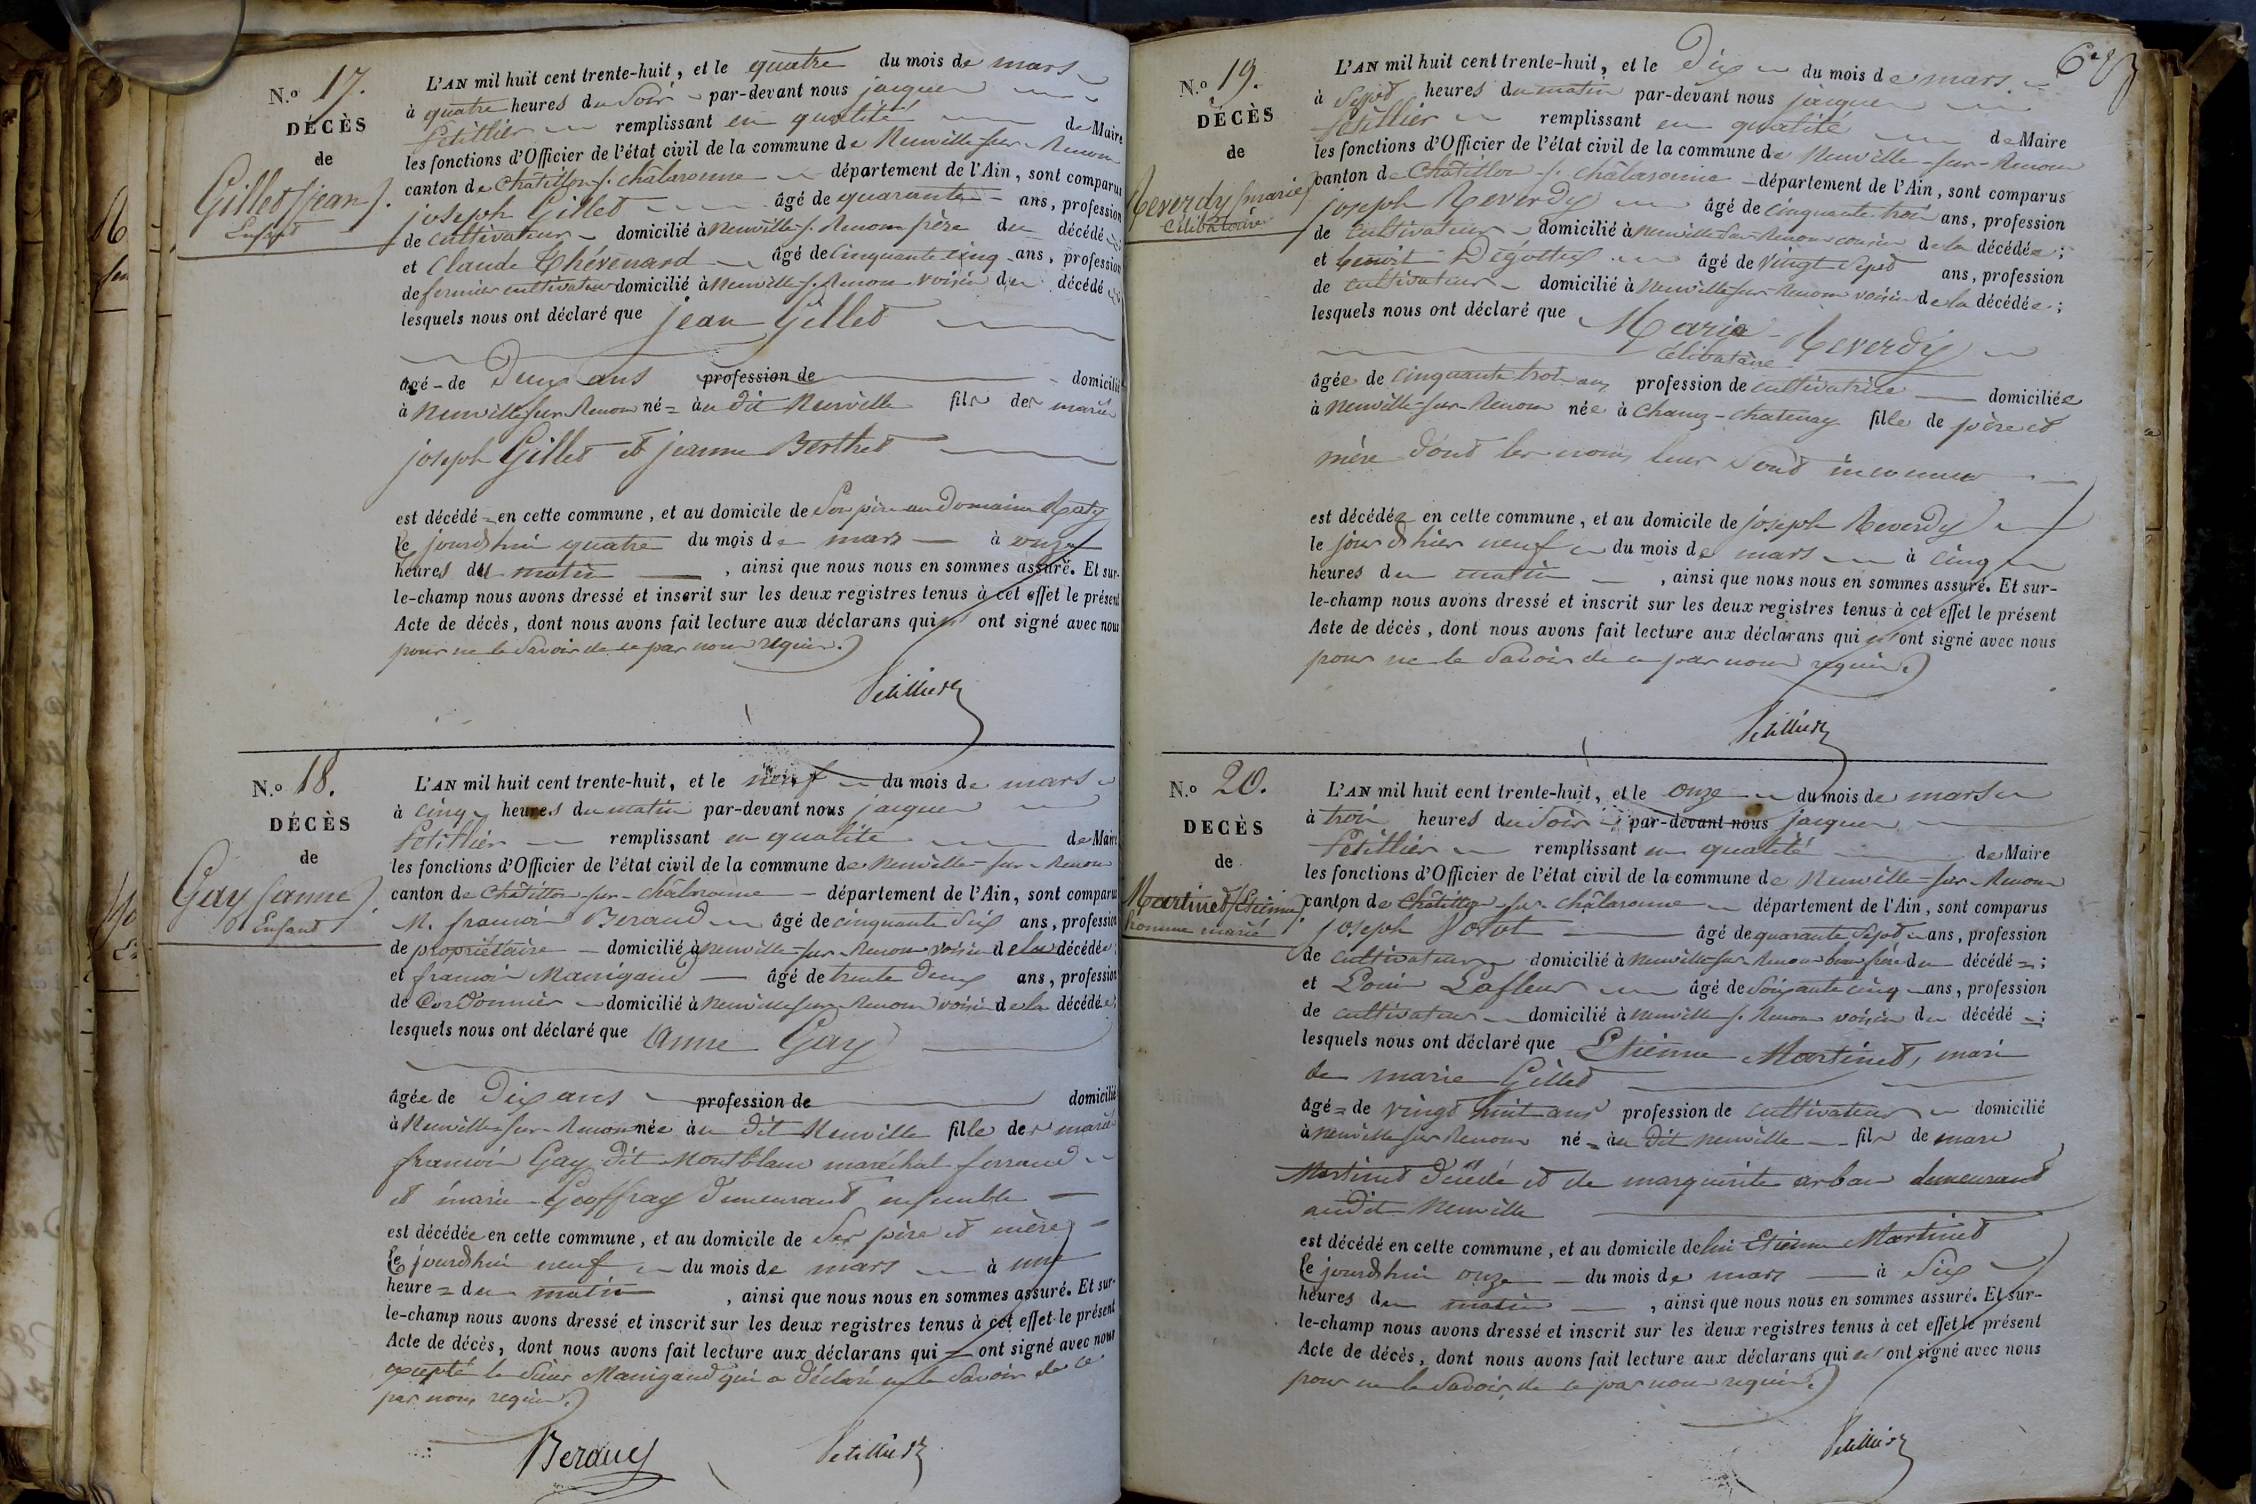 N.º 17.
DÉCÈS
de
Gillet (jean).
Enfant
L'AN mil huit cent trente-huit, et le quatre du mois de mars
à quatre heures du Soir par-devant nous jacques
Petillier remplissant en qualité de Maire
les fonctions d'Officier de l'état civil de la commune de Neuville-sur-Renom
canton de Châtillon-s.-châlaronne département de l'Ain, sont comparus
joseph Gillet âgé de quarante ans, profession
de cultivateur domicilié à Neuville-s.-Renom père du décédé
et Claude Chévenard âgé de cinquante cinq ans, profession
de fermier cultivateur domicilié à Neuville-s.-Renom voisin du décédé
lesquels nous ont déclaré que jean Gillet
âgé de Deux ans profession de domicilié
à Neuville sur Renom né au dit Neuville fils des mariés
joseph Gillet et jeanne Berthet
est décédé en cette commune, et au domicile de Son père au Domaine
Le jourd'hui quatre du mois de mars à onze
heures du matin, ainsi que nous nous en sommes assuré. Et sur-
le-champ nous avons dressé et inscrit sur les deux registres tenus à cet effet le présent
Acte de décès, dont nous avons fait lecture aux déclarans qui ont signé avec nous
pour ne le Savoir de ce par nous requis.
Petillier
N.º 18.
DÉCÈS
de
Gay (anne).
Enfant
L'AN mil huit cent trente-huit, et le neuf du mois de mars
à cinq heures du matin par-devant nous jacques
Petillier remplissant en qualité de Maire
les fonctions d'Officier de l'état civil de la commune de Neuville-sur-Renom
canton de Châtillon-sur-châlaronne département de l'Ain, sont comparus
M. françois Beraud âgé de cinquante Six ans, profession
de propriétaire domicilié à Neuville-sur-Renom voisin de la décédée;
et françois Manigand âgé de trente deux ans, profession
de Cordonnier domicilié à Neuville sur Renom voisin de la décédée;
lesquels nous ont déclaré que Anne Gay
âgée de Dix ans profession de domicilié
à Neuville-sur-Renom née au dit Neuville fille des mariés
françois Gay dit Montblanc maréchal ferrand
et marie Geoffray demeurant ensemble
est décédée en cette commune, et au domicile de Ses père et mère
Le jourd'hui neuf du mois de mars à une
heure du matin, ainsi que nous nous en sommes assuré. Et sur-
le-champ nous avons dressé et inscrit sur les deux registres tenus à cet effet le présent
Acte de décès, dont nous avons fait lecture aux déclarans qui ont signé avec nous
excepté le Sieur Manigand qui a déclaré ne le Savoir de ce
par nous requis.
Beraud Petillier
N.º 19.
DÉCÈS
de
Reverdy (marie)
Célibataire
L'AN mil huit cent trente-huit, et le Dix du mois de mars
à Sept heures du matin par-devant nous jacques
Petillier remplissant en qualité de Maire
les fonctions d'Officier de l'état civil de la commune de Neuville-sur-Renom
canton de Châtillon-s.-châlaronne département de l'Ain, sont comparus
joseph Reverdy âgé de cinquante trois ans, profession
de cultivateur domicilié à Neuville sur Renom cousin de la décédée;
et benoit Dégottex âgé de Vingt Sept ans, profession
de cultivateur domicilié à Neuville sur Renom voisin de la décédée;
lesquels nous ont déclaré que Marie Reverdy
Célibataire
âgée de cinquante trois ans profession de cultivatrice domiciliée
à Neuville-sur-Renom née à Chanoz-chatenay fille de père et
mère dont les noms leur Sont inconnus
est décédée en cette commune, et au domicile de joseph Reverdy
le jour d'hier neuf du mois de mars à cinq
heures du matin, ainsi que nous nous en sommes assuré. Et sur-
le-champ nous avons dressé et inscrit sur les deux registres tenus à cet effet le présent
Acte de décès, dont nous avons fait lecture aux déclarans qui ont signé avec nous
pour ne le Savoir de ce par nous requis.
Petillier
N.º 20.
DECÈS
de
Martinet (Etienne)
homme marié
L'AN mil huit cent trente-huit, et le onze du mois de mars
à trois heures du Soir par-devant nous jacques
Petillier remplissant en qualité de Maire
les fonctions d'Officier de l'état civil de la commune de Neuville-sur-Renom
canton de Châtillon-sur-châlaronne département de l'Ain, sont comparus
joseph âgé de quarante Sept ans, profession
de cultivateur domicilié à Neuville-sur-Renom beau frère du décédé;
et Louis Lafleur âgé de Soixante cinq ans, profession
de cultivateur domicilié à Neuville s. Renom voisin du décédé;
lesquels nous ont déclaré que Etienne Martinet, mari
de marie Gillet
âgé de vingt huit ans profession de cultivateur domicilié
à Neuville sur Renom né au dit neuville fils de marc
Martinet décédé et de marguerite arban demeurant
audit Neuville
est décédé en cette commune, et au domicile de lui Etienne Martinet
Le jourd'hui onze du mois de mars à Six
heures du matin, ainsi que nous nous en sommes assuré. Et sur-
le-champ nous avons dressé et inscrit sur les deux registres tenus à cet effet le présent
Acte de décès, dont nous avons fait lecture aux déclarans qui ont signé avec nous
pour ne le Savoir de ce par nous requis.
Petillier